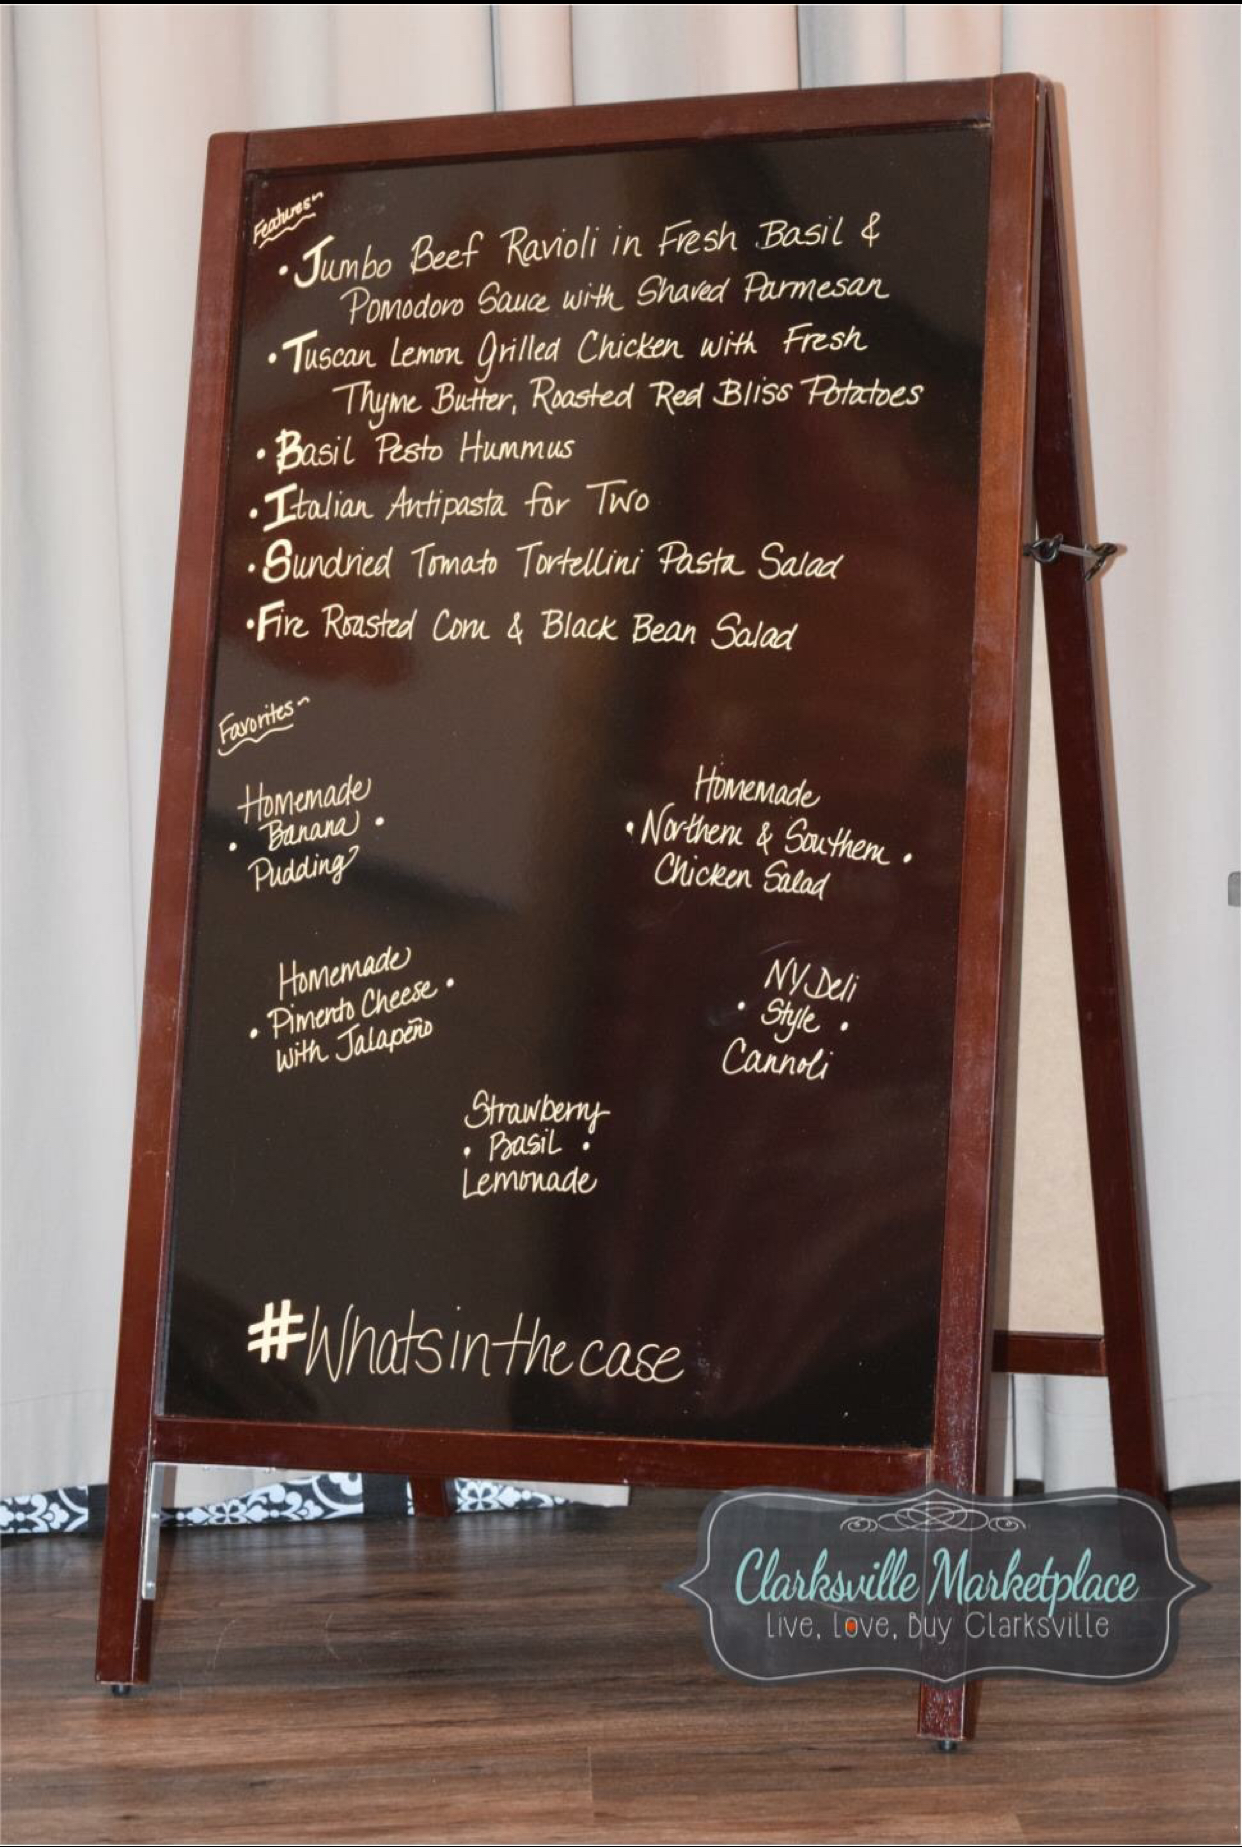 Features~
• Jumbo Beef Ravioli in Fresh Basil &
Pomodoro Sauce with Shaved Parmesan
• Tuscan Lemon Grilled Chicken with Fresh
Thyme Butter, Roasted Red Bliss Potatoes
• Basil Pesto Hummus
• Italian Antipasta for Two
• Sundried Tomato Tortellini Pasta Salad
• Fire Roasted Corn & Black Bean Salad
Favorites~
Homemade
• Banana •
Pudding
Homemade
• Northern & Southern •
Chicken Salad
Homemade
• Pimento Cheese •
with Jalapeño
NY Deli
• Style •
Cannoli
Strawberry
• Basil •
Lemonade
#Whatsinthecase
Clarksville Marketplace
Live, Love, Buy Clarksville